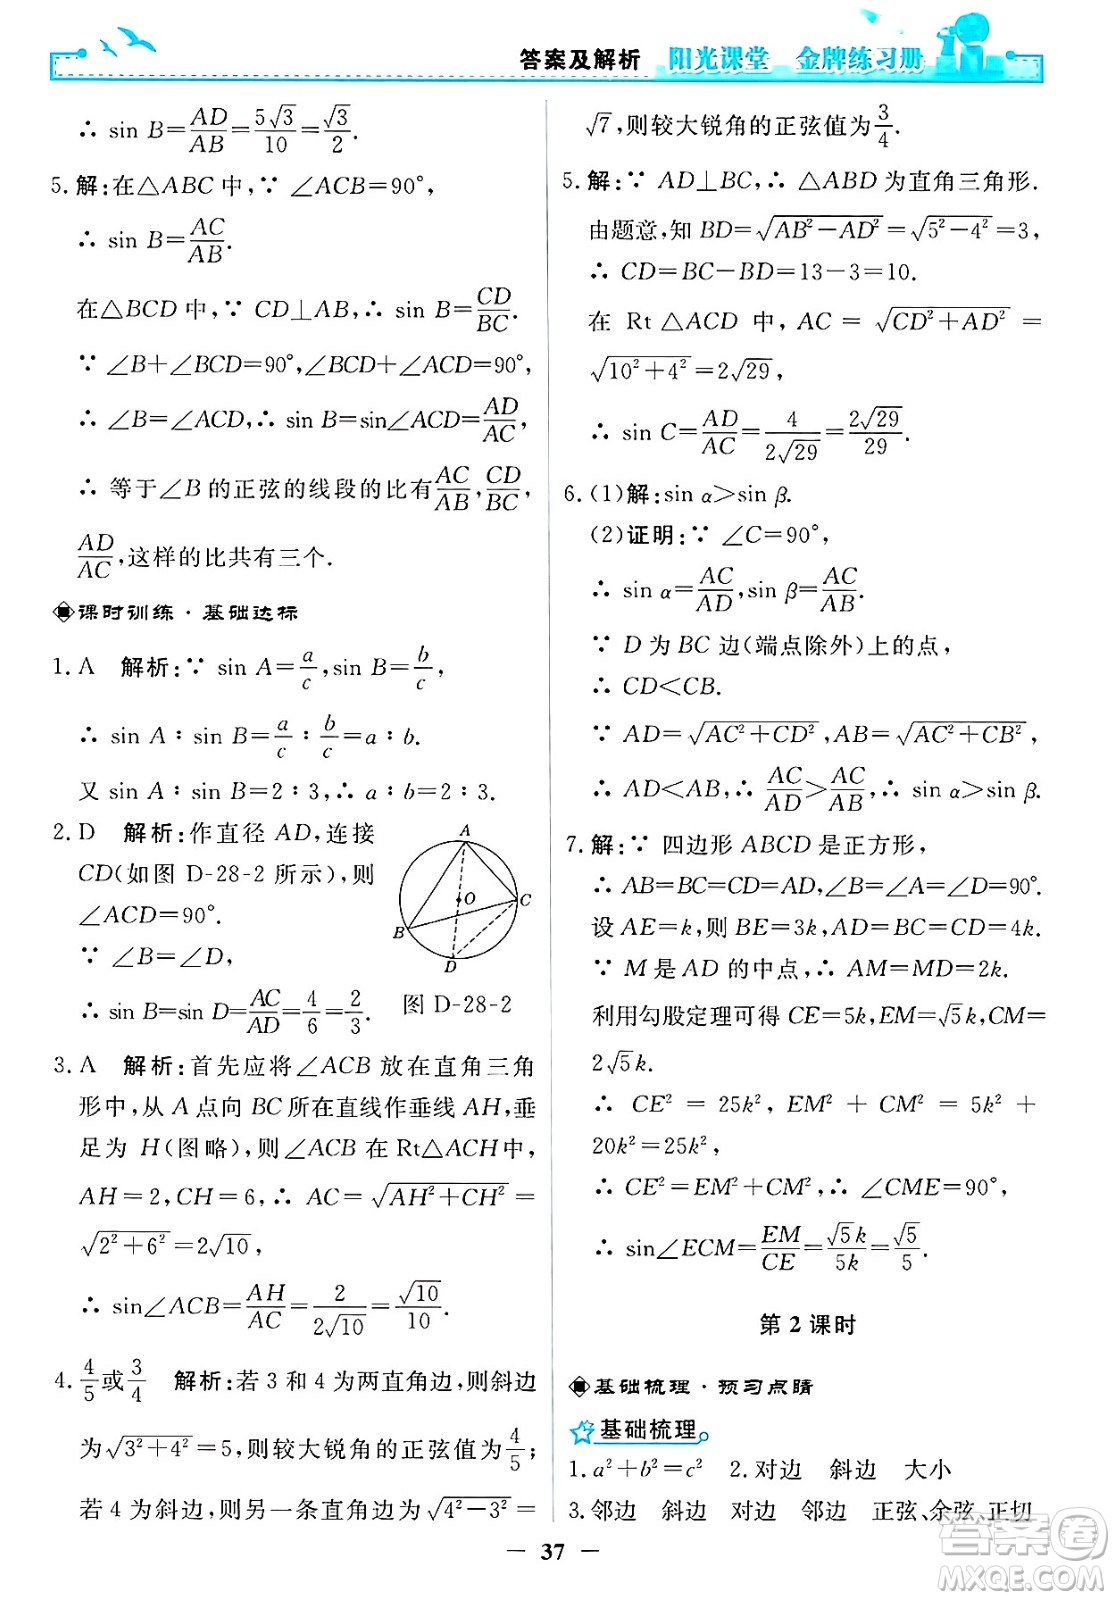 答案及解析 阳光课堂 金牌练习册
∴ sin B=AD/AB=5√3/10=√3/2.
5. 解:在△ABC 中,∵ ∠ACB=90°,
∴ sin B=AC/AB.
在△BCD 中,∵ CD⊥AB,∴ sin B=CD/BC.
∵ ∠B+∠BCD=90°,∠BCD+∠ACD=90°,
∴ ∠B=∠ACD,∴ sin B=sin∠ACD=AD/AC.
∴ 等于∠B 的正弦的线段的比有AC/AB,CD/BC,
AD/AC,这样的比共有三个.
课时训练·基础达标
1. A 解析:∵ sin A=a/c,sin B=b/c,
∴ sin A∶sin B=a/c∶b/c=a∶b.
又 sin A∶sin B=2∶3,∴ a∶b=2∶3.
2. D 解析:作直径 AD,连接
CD(如图 D-28-2 所示),则
∠ACD=90°.
∵ ∠B=∠D,
∴ sin B=sin D=AC/AD=4/6=2/3.
A
O
C
B
D
图 D-28-2
3. A 解析:首先应将∠ACB 放在直角三角
形中,从 A 点向 BC 所在直线作垂线 AH,垂
足为 H(图略),则∠ACB 在 Rt△ACH 中,
AH=2,CH=6,∴ AC=√(AH²+CH²)=
√(2²+6²)=2√10,
∴ sin∠ACB=AH/AC=2/(2√10)=√10/10.
4. 4/5或3/4 解析:若 3 和 4 为两直角边,则斜边
为√(3²+4²)=5,则较大锐角的正弦值为4/5;
若 4 为斜边,则另一条直角边为√(4²-3²)=
√7,则较大锐角的正弦值为3/4.
5. 解:∵ AD⊥BC,∴ △ABD 为直角三角形.
由题意,知 BD=√(AB²-AD²)=√(5²-4²)=3,
∴ CD=BC-BD=13-3=10.
在 Rt △ACD 中,AC=√(CD²+AD²)=
√(10²+4²)=2√29,
∴ sin C=AD/AC=4/(2√29)=2√29/29.
6. (1)解:sin α>sin β.
(2)证明:∵ ∠C=90°,
∴ sin α=AC/AD,sin β=AC/AB.
∵ D 为 BC 边(端点除外)上的点,
∴ CD<CB.
∵ AD=√(AC²+CD²),AB=√(AC²+CB²),
∴ AD<AB,∴ AC/AD>AC/AB,∴ sin α>sin β.
7. 解:∵ 四边形 ABCD 是正方形,
∴ AB=BC=CD=AD,∠B=∠A=∠D=90°.
设 AE=k,则 BE=3k,AD=BC=CD=4k.
∵ M 是 AD 的中点,∴ AM=MD=2k.
利用勾股定理可得 CE=5k,EM=√5k,CM=
2√5k.
∴ CE²=25k²,EM²+CM²=5k²+
20k²=25k².
∴ CE²=EM²+CM²,∴ ∠CME=90°,
∴ sin∠ECM=EM/CE=√5k/5k=√5/5.
第 2 课时
基础梳理·预习点睛
基础梳理
1. a²+b²=c² 2. 对边 斜边 大小
3. 邻边 斜边 对边 邻边 正弦、余弦、正切
— 37 —
答案卷
MXQE.COM